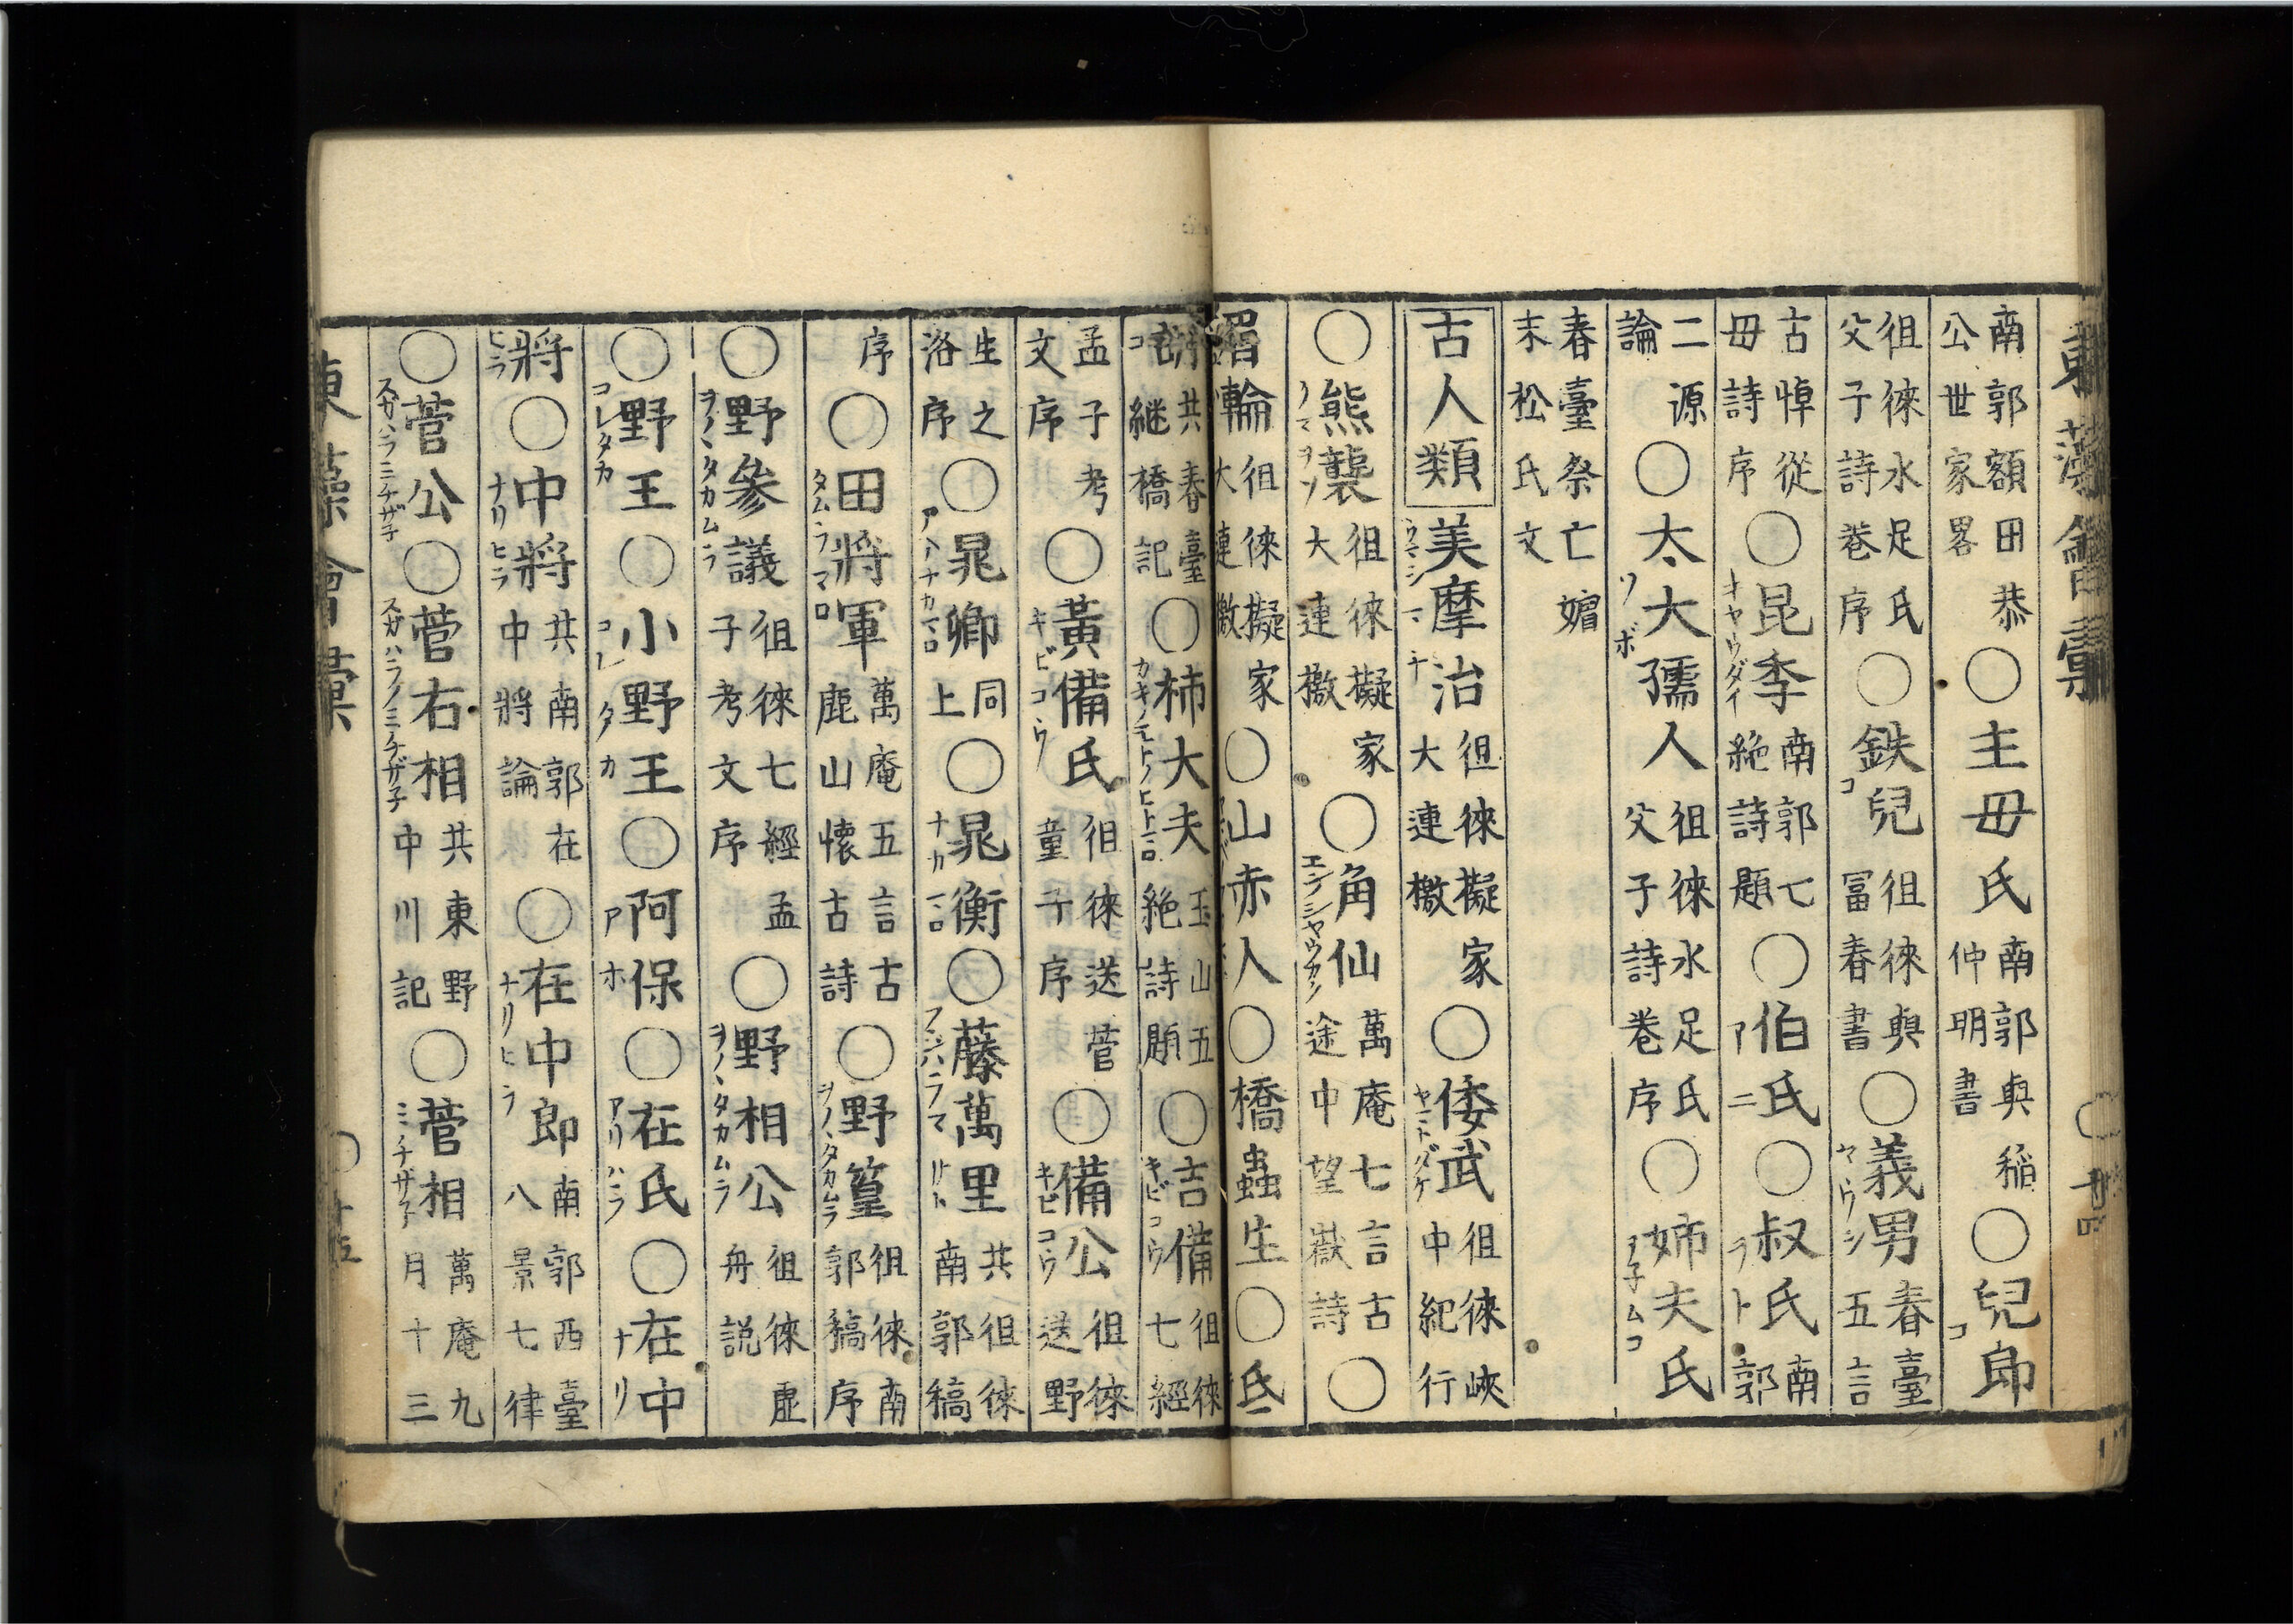 南郭額田恭公世家畧○主母氏南郭與稲仲明書○兒郎
徂徠水足氏父子詩巻序○鉄兒徂徠與冨春書○義男春臺五言
古悼從母詩序○昆季南郭七絶詩題○伯氏○叔氏南郭
二源論○太大孺人徂徠水足氏父子詩巻序○姉夫氏
春臺祭亡媢末松氏文
古人類 美摩治徂徠擬家大連檄○倭武徂徠峽中紀行
○熊襲徂徠擬家大連檄○角仙萬庵七言古途中望嶽詩○
輪徂徠擬家大連檄○山赤人○橋蟲生○
共春臺継橋記○柿大夫玉山五絶詩題○吉備徂徠七經
孟子考文序○黃備氏徂徠送菅童子序○備公徂徠送野
生之洛序○晁卿同上○晁衡○藤萬里共徂徠南郭稿
序○田將軍萬庵五言古鹿山懐古詩○野篁徂徠南郭稿序
○野參議徂徠七經孟子考文序○野相公徂徠虛舟説
○野王○小野王○阿保○在氏○在中
將○中將共南郭在中將論○在中郎南郭西臺八景七律
○菅公○菅右相共東野中川記○菅相萬庵九月十三
東藻會彙